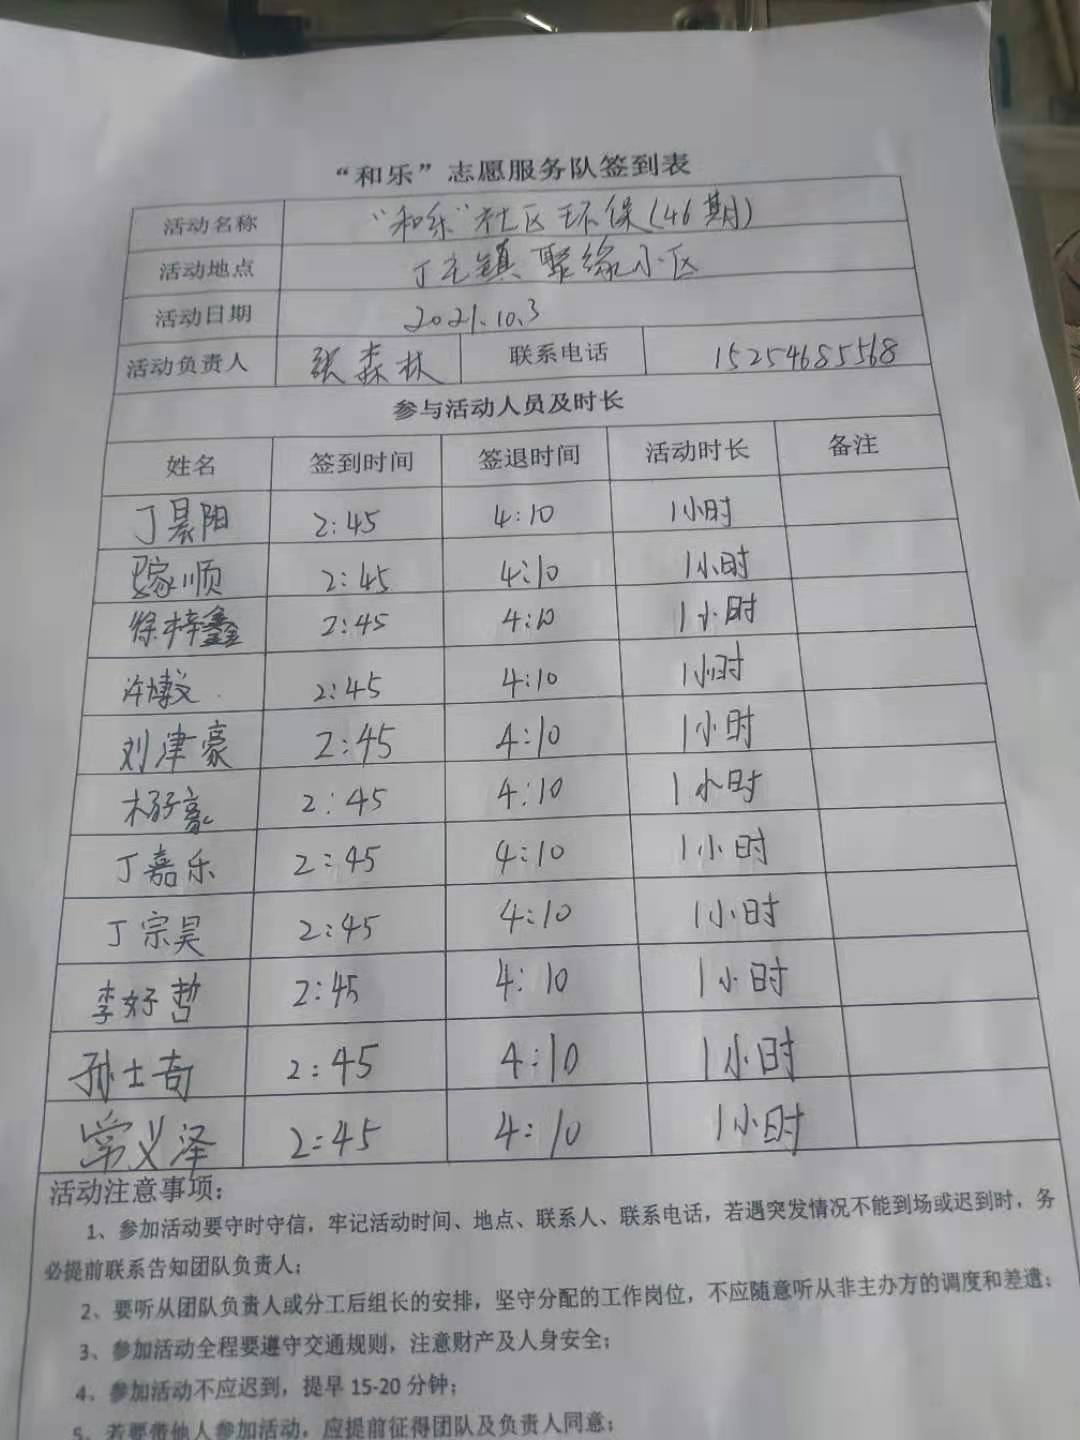 “和乐”志愿服务队签到表
活动名称 “和乐”社区环保(46期)
活动地点 丁庄镇聚缘小区
活动日期 2021.10.3
活动负责人 张森林 联系电话 15254685568
参与活动人员及时长
姓名 签到时间 签退时间 活动时长 备注
丁晨阳 2:45 4:10 1小时
家顺 2:45 4:10 1小时
徐梓鑫 2:45 4:10 1小时
许 2:45 4:10 1小时
刘津豪 2:45 4:10 1小时
杨子豪 2:45 4:10 1小时
丁嘉乐 2:45 4:10 1小时
丁宗昊 2:45 4:10 1小时
李好哲 2:45 4:10 1小时
孙士奇 2:45 4:10 1小时
常义泽 2:45 4:10 1小时
活动注意事项:
1、参加活动要守时守信，牢记活动时间、地点、联系人、联系电话，若遇突发情况不能到场或迟到时，务
必提前联系告知团队负责人；
2、要听从团队负责人或分工后组长的安排，坚守分配的工作岗位，不应随意听从非主办方的调度和差遣；
3、参加活动全程要遵守交通规则，注意财产及人身安全；
4、参加活动不应迟到，提早 15-20 分钟；
5、若要带他人参加活动，应提前征得团队及负责人同意；